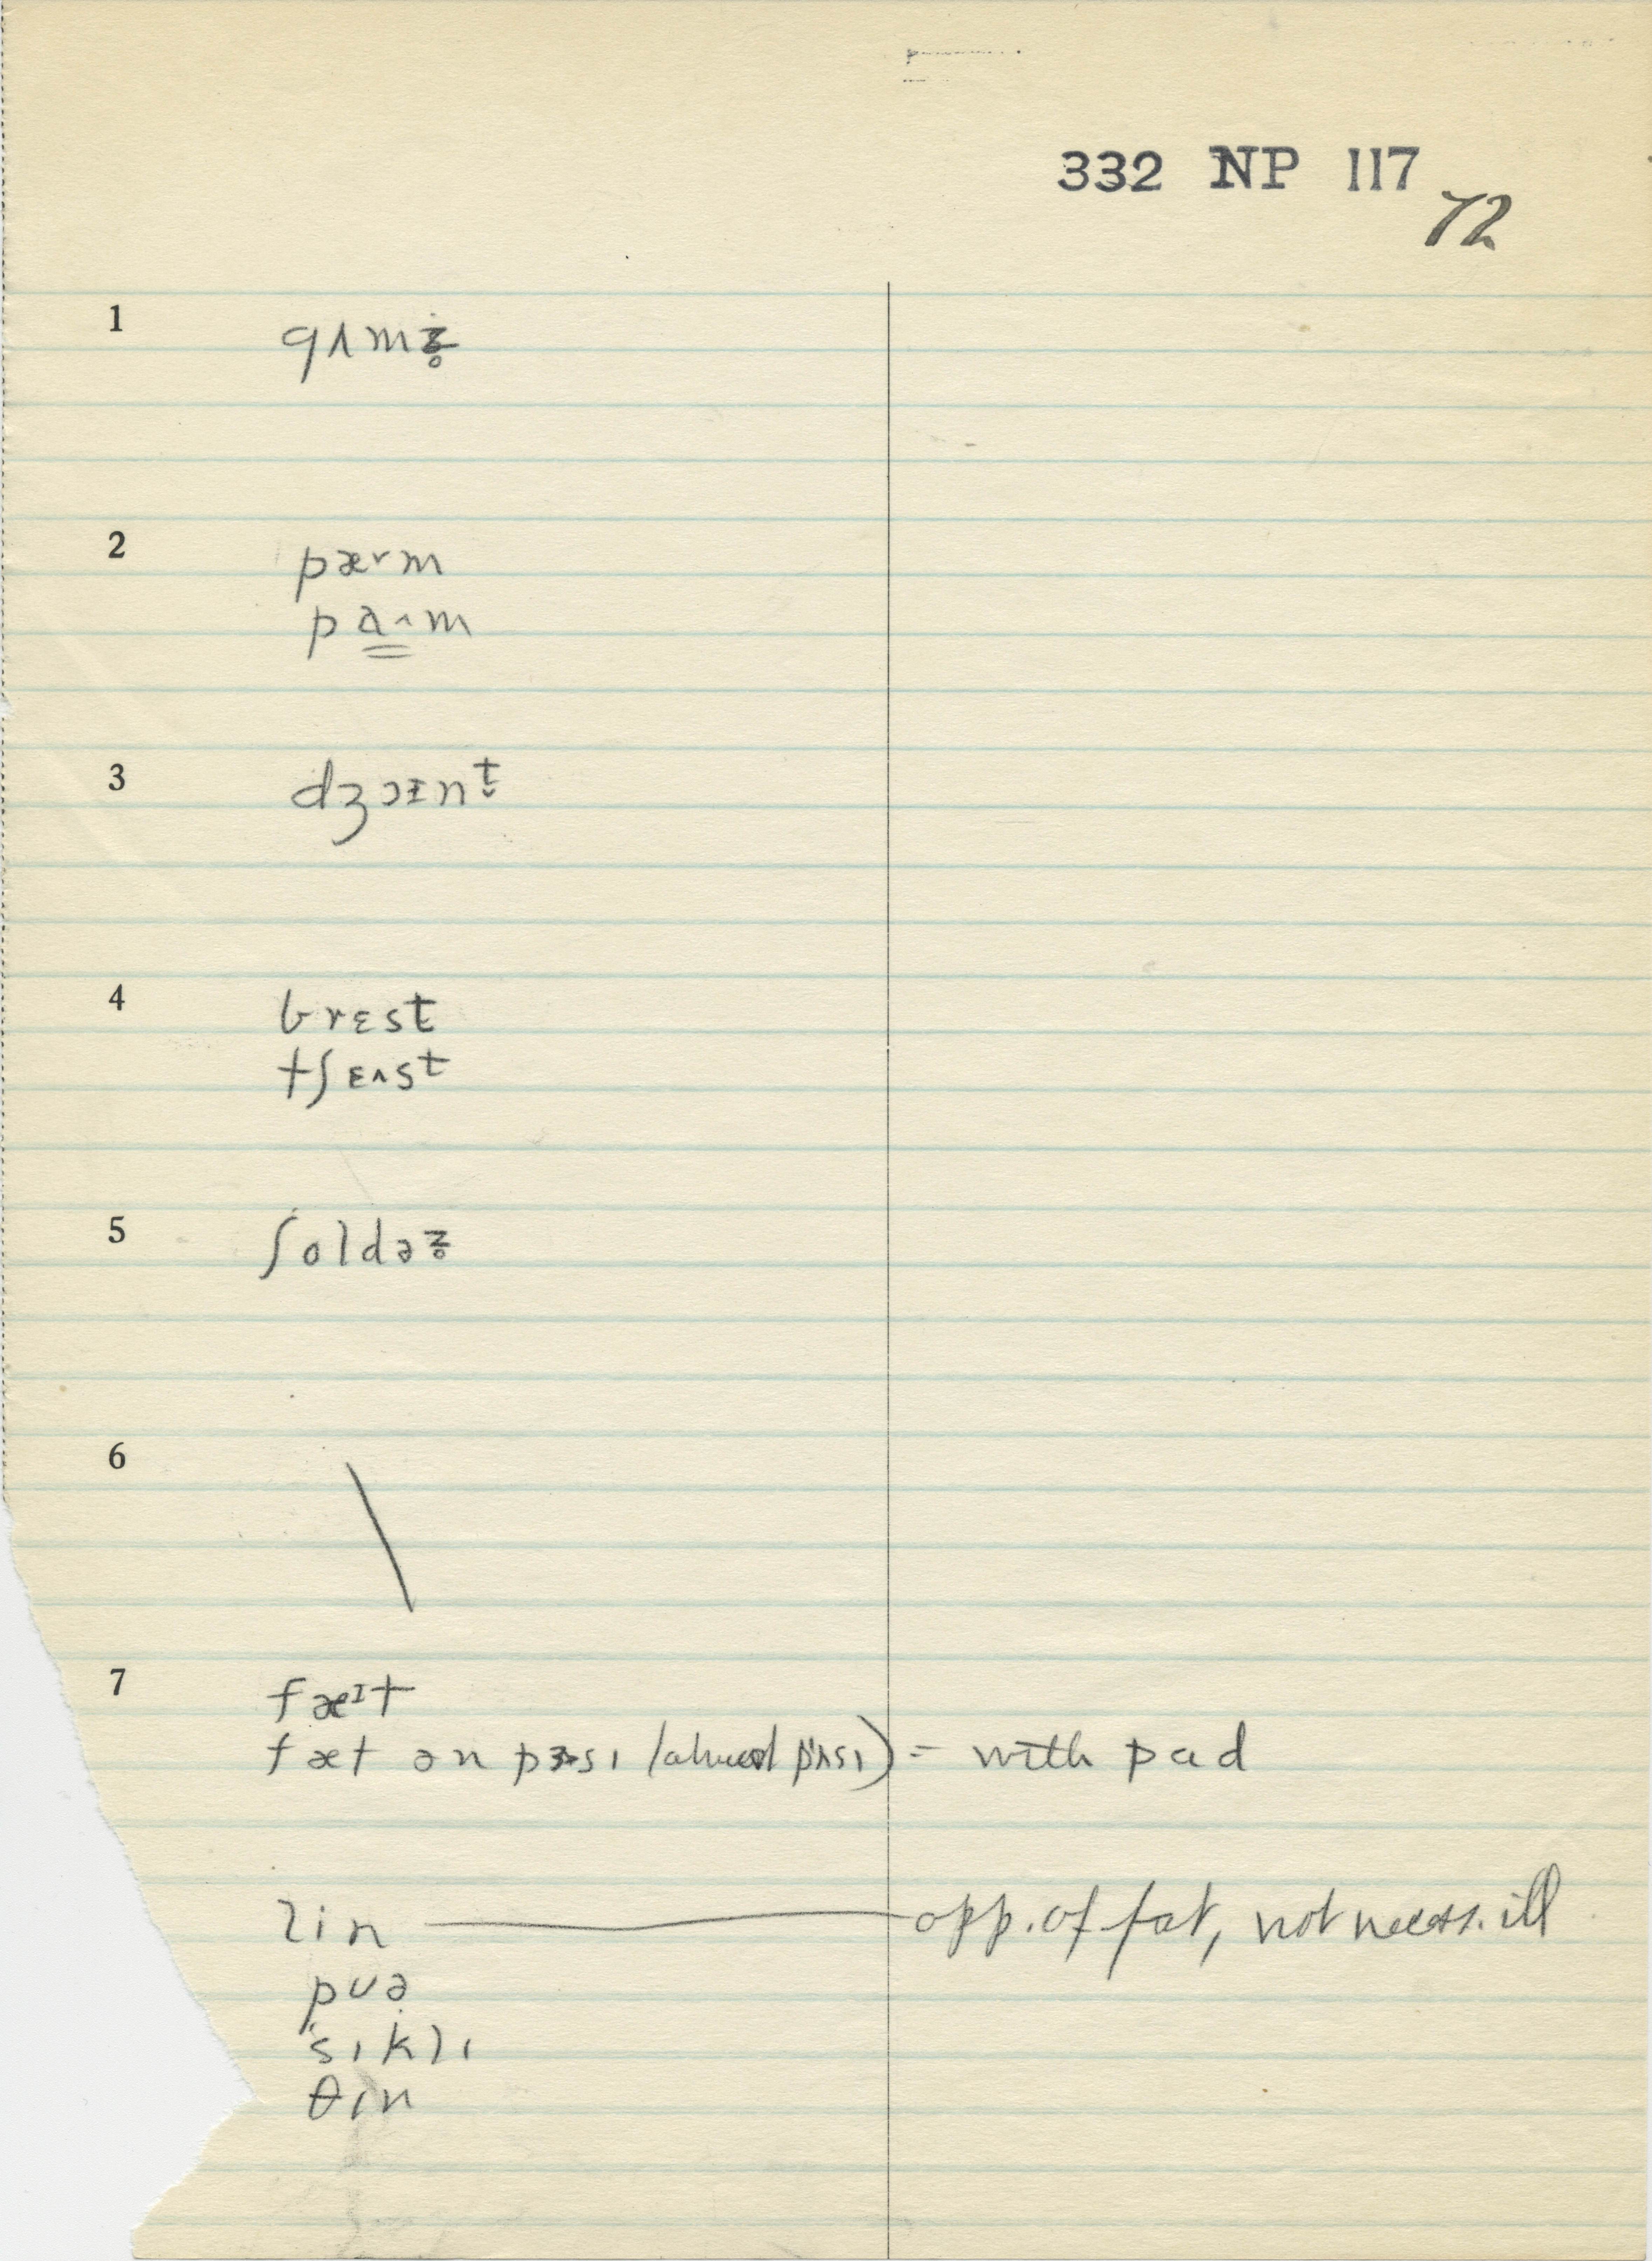 332 NP 117
72
1 gʌmz̵̥
2 pæ˅m
pa̳˄m
3 dʒɔɪnt̬
4 brɛst
tʃɛʌst
5 ʃoldəz̵̥
6 \
7 fæᶦt
fæt on = with pad
lin — opp. of fat, not necess. ill
pʊə
'sɪklɪ
θɪn